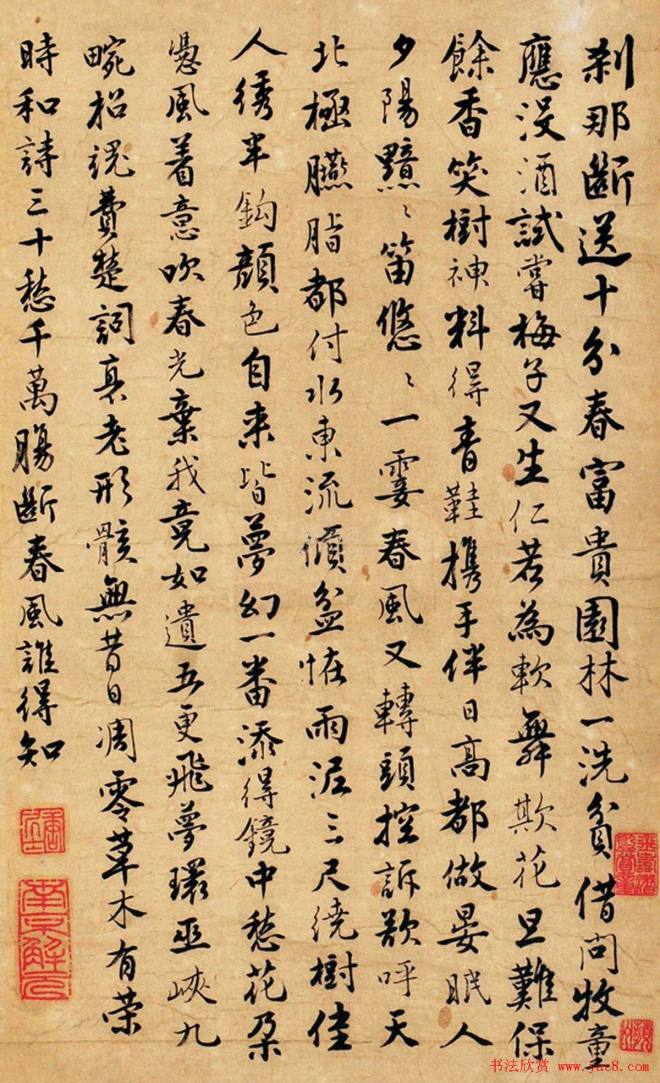 刹那斷送十分春富貴園林一洗貧借問牧童
應沒酒試嘗梅子又生仁若為軟舞欺花旦難保
餘香笑樹神料得青鞋攜手伴日高都做晏眠人
夕陽黯〻笛悠〻一霎春風又轉頭控訴欲呼天
北極臙脂都付水東流傾盆怪雨泥三尺繞樹佳
人綉半鈎顏色自來皆夢幻一番添得鏡中愁花朵
憑風着意吹春光棄我竟如遺五更飛夢環巫峽九
畹招魂費楚詞衰老形骸無昔日凋零草木有榮
時和詩三十愁千萬腸斷春風誰得知
南京解元
书法欣赏 www.yac8.com